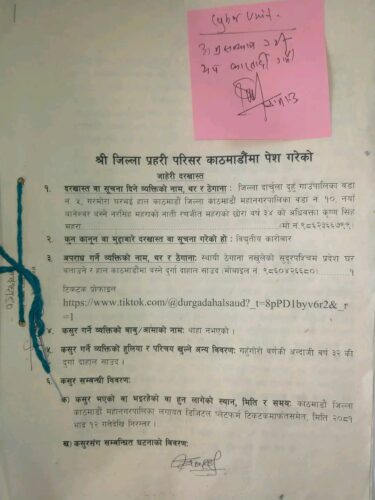 Cyber Unit.
श्री जिल्ला प्रहरी परिसर काठमाडौंमा पेश गरेको
जाहेरी दरखास्त
१. दरखास्त वा सूचना दिने व्यक्तिको नाम, थर र ठेगाना : जिल्ला दार्चुला दुहुँ गाउँपालिका वडा
नं. ५, घरभई हाल काठमाडौं जिल्ला काठमाडौं महानगरपालिका वडा नं १०, नयाँ
बानेश्वर बस्ने नरसिंह महराको नाती रणजीत महराको छोरा वर्ष ३४ को अधिवक्ता कृष्ण सिंह
महरा (मो नं.९८६२३६७५९९)
२. कुन कानुन वा मुद्दाबारे दरखास्त वा सूचना गरेको हो : विद्युतीय कारोबार
३. अपराध गर्ने व्यक्तिको नाम, थर र ठेगाना: स्थायी ठेगाना नखुलेको सुदूरपश्चिम प्रदेश घर
बताउने र हाल काठमाडौंमा बस्ने दुर्गा दाहाल साउद (मोबाइल नं. ९८६०४२६६८०) १
टिकटक प्रोफाइल
https://www.tiktok.com/@durgadahalsaud?_t=8pPD1byv6r2&_r
=1
४. कसुर गर्ने व्यक्तिको बाबु/आमाको नाम: थाहा नभएको।
५. कसुर गर्ने व्यक्तिको हुलिया र परिचय खुल्ने अन्य विवरण: गहुँगोरी वर्णकी अन्दाजी वर्ष ३२ की
दुर्गा दाहाल साउद ।
६. कसुर सम्बन्धी विवरण:
क) कसुर भएको वा भइरहेको वा हुन लागेको स्थान, मिति र समय: काठमाडौं जिल्ला
काठमाडौं महानगरपालिका लगायत डिजिटल प्लेटफर्म टिकटकमार्फतसमेत, मिति २०८१
भाद्र १२ गतेदेखि निरन्तर ।
ख) कसुरसंग सम्बन्धित घटनाको विवरण: